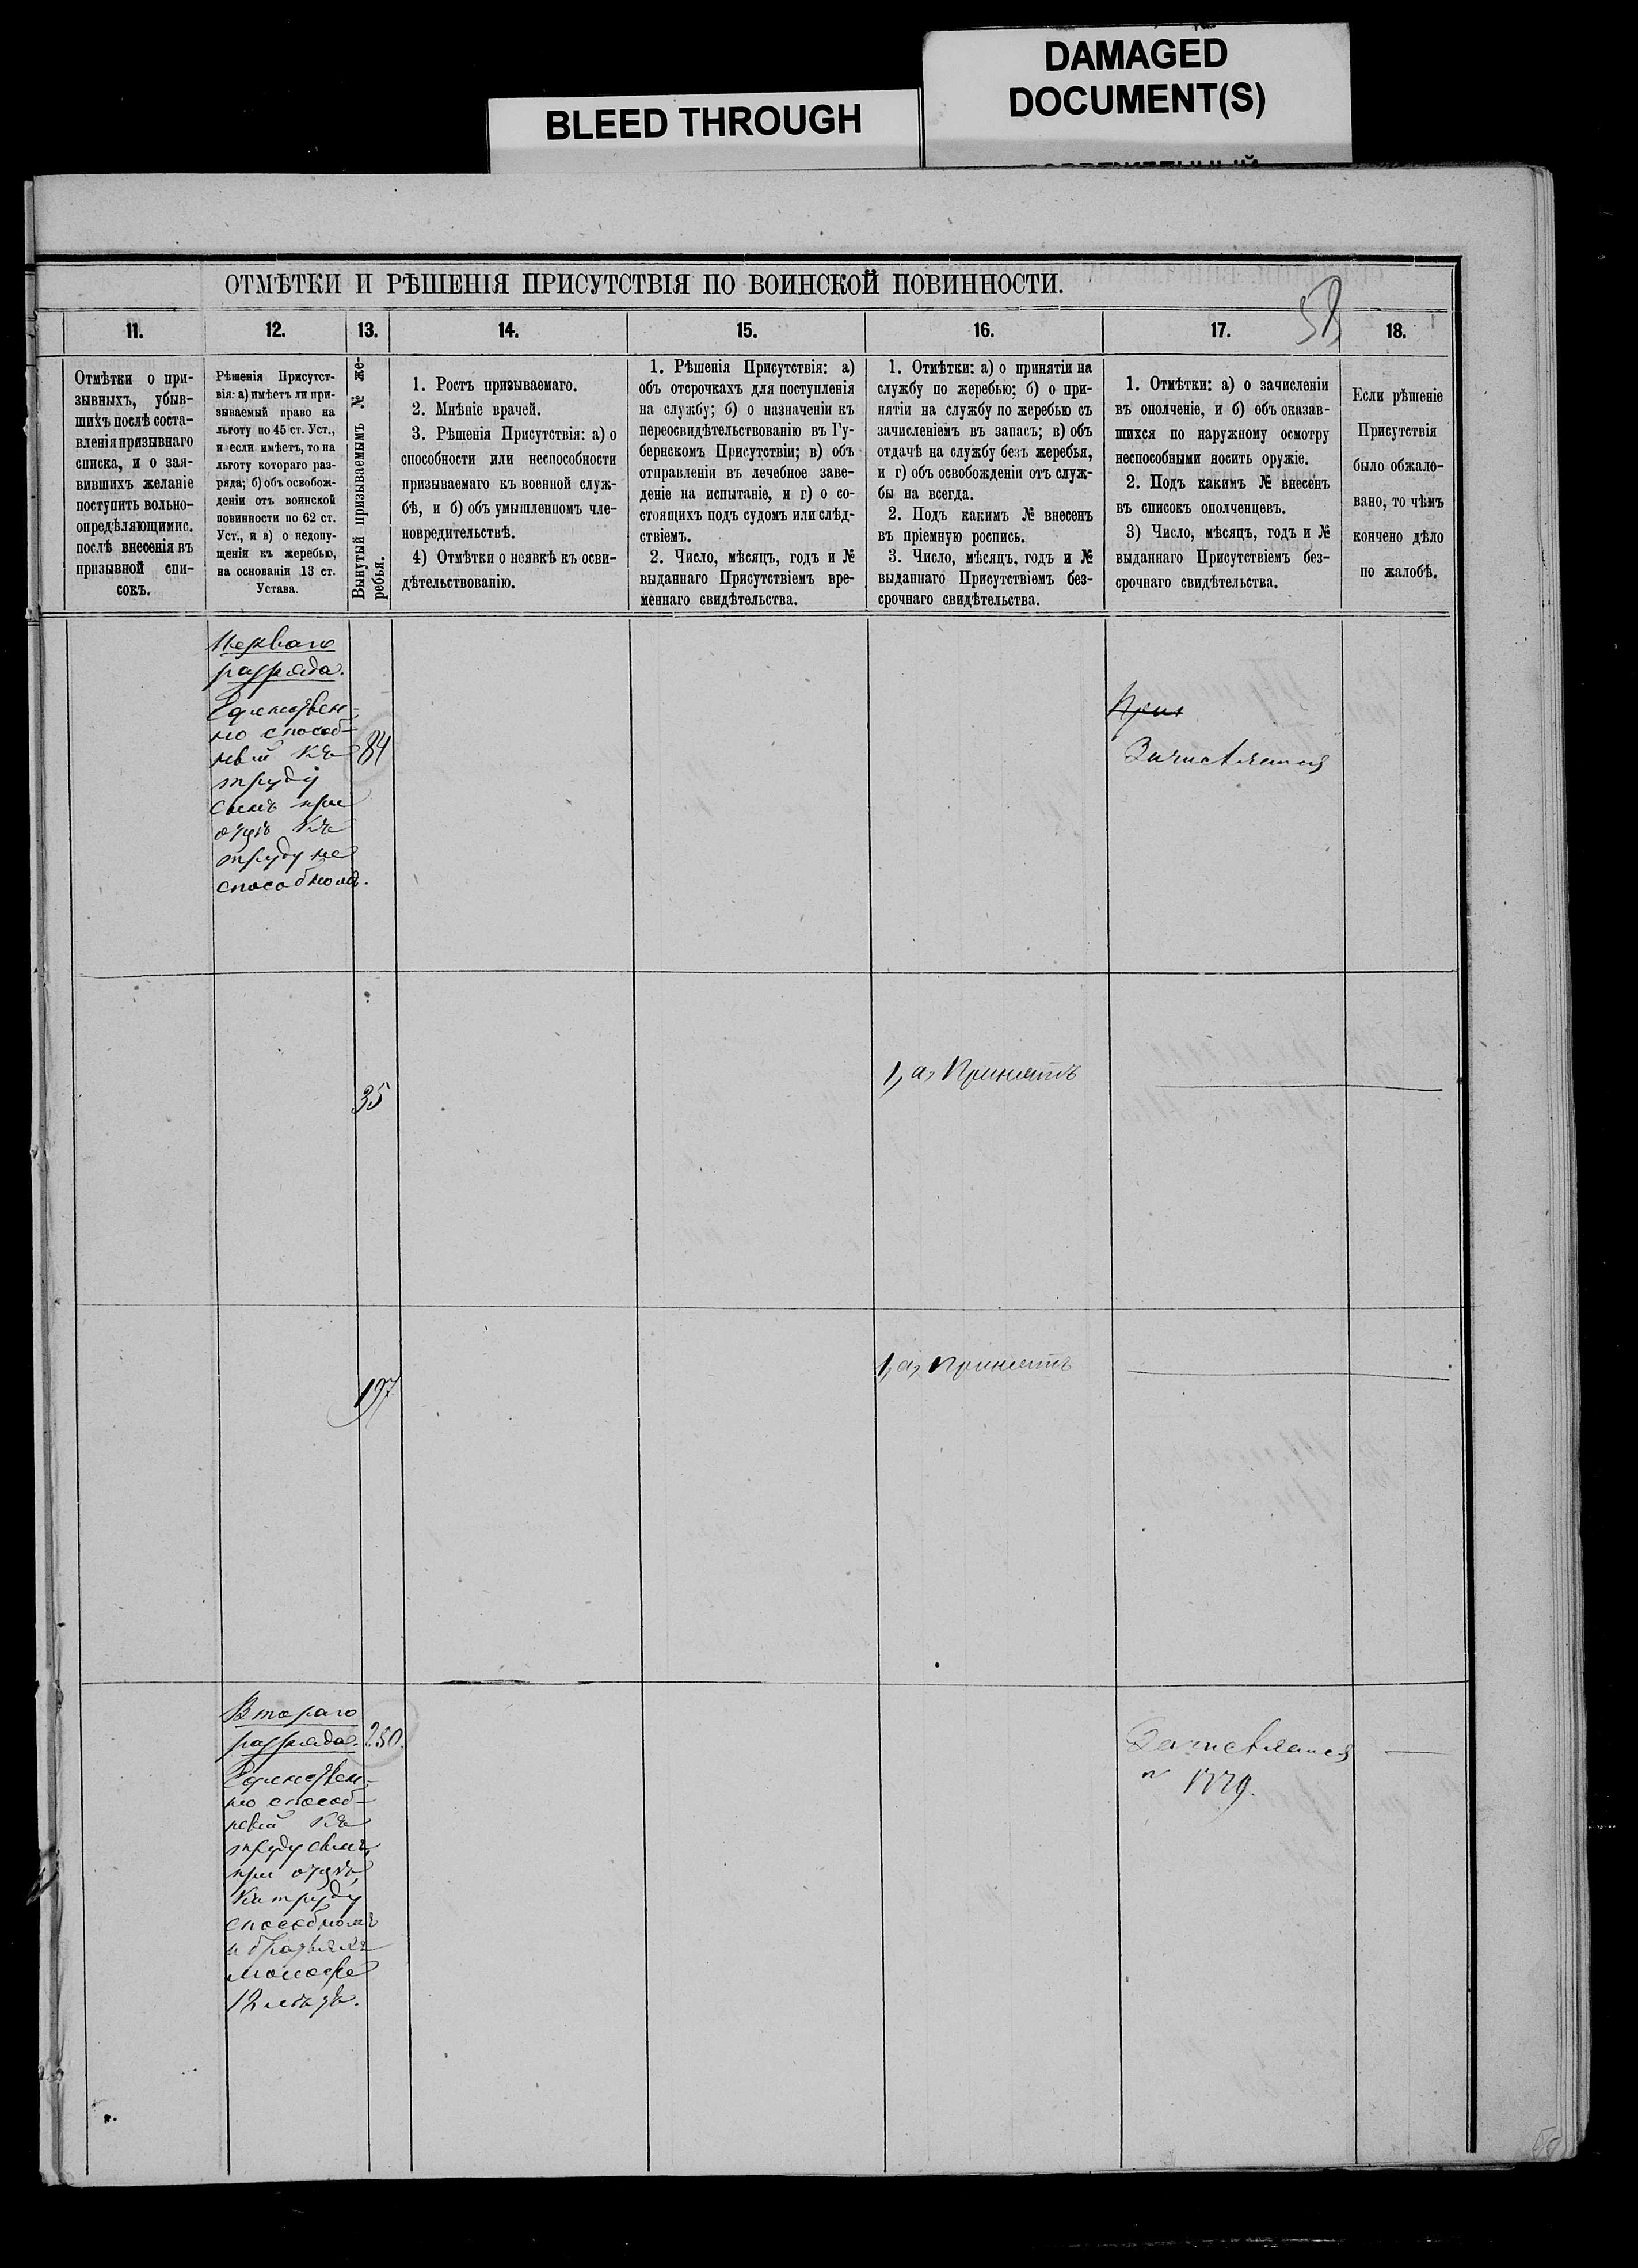 DAMAGED
DOCUMENT(S)
BLEED THROUGH
ОТМѢТКИ И РѢШЕНІЯ ПРИСУТСТВІЯ ПО ВОИНСКОЙ ПОВИННОСТИ.
11.
12.
13.
14.
15.
16.
17.
18.
Отмѣтки о при-
зывныхъ, убыв-
шихъ послѣ соста-
вленія призывнаго
списка, и о зая-
вившихъ желаніе
поступить вольно-
опредѣляющимис.
послѣ внесенія въ
призывной спи-
сокъ.
Рѣшенія Присутст-
вія: а) имѣетъ ли при-
зываемый право на
льготу по 45 ст. Уст.,
и если имѣетъ, то на
льготу котораго раз-
ряда; б) объ освобож-
деніи отъ воинской
повинности по 62 ст.
Уст., и в) о недопу-
щеніи къ жеребью,
на основаніи 13 ст.
Устава.
Вынутый призываемымъ № же-
ребья.
1. Ростъ призываемаго.
2. Мнѣніе врачей.
3. Рѣшенія Присутствія: а) о
способности или неспособности
призываемаго къ военной служ-
бѣ, и б) объ умышленномъ чле-
новредительствѣ.
4) Отмѣтки о неявкѣ къ осви-
дѣтельствованію.
1. Рѣшенія Присутствія: а)
объ отсрочкахъ для поступленія
на службу; б) о назначеніи къ
переосвидѣтельствованію въ Гу-
бернскомъ Присутствіи; в) объ
отправленіи въ лечебное заве-
деніе на испытаніе, и г) о со-
стоящихъ подъ судомъ или слѣд-
ствіемъ.
2. Число, мѣсяцъ, годъ и №
выданнаго Присутствіемъ вре-
меннаго свидѣтельства.
1. Отмѣтки: а) о принятіи на
службу по жеребью; б) о при-
нятіи на службу по жеребью съ
зачисленіемъ въ запасъ; в) объ
отдачѣ на службу безъ жеребья,
и г) объ освобожденіи отъ служ-
бы на всегда.
2. Подъ какимъ № внесенъ
въ пріемную роспись.
3. Число, мѣсяцъ, годъ и №
выданнаго Присутствіемъ без-
срочнаго свидѣтельства.
1. Отмѣтки: а) о зачисленіи
въ ополченіе, и б) объ оказав-
шихся по наружному осмотру
неспособными носить оружіе.
2. Подъ какимъ № внесенъ
въ списокъ ополченцевъ.
3) Число, мѣсяцъ, годъ и №
выданнаго Присутствіемъ без-
срочнаго свидѣтельства.
Если рѣшеніе
Присутствія
было обжало-
вано, то чѣмъ
кончено дѣло
по жалобѣ.
Перваго
разряда.
Единствен-
но способ-
ный къ
труду
сынъ при
отцѣ къ
труду не
способномъ.
84
Прин
Зачисляется
35
1, а, Принятъ
197
1, а, Принятъ
Втораго
разряда.
Единствен-
но способ-
ный къ
труду сынъ,
при отцѣ,
къ труду
способномъ
и братьяхъ
моложе
18 лѣтъ.
230.
Зачисляется